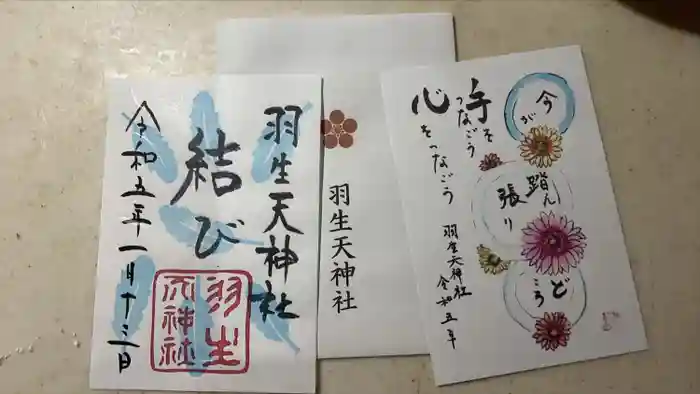 羽生天神社
結び
令和五年一月十三日
羽生
天神社
羽生天神社
今
が
踏ん
張り
ど
ころ
手を
つなごう
心
をつなごう
羽生天神社
令和五年